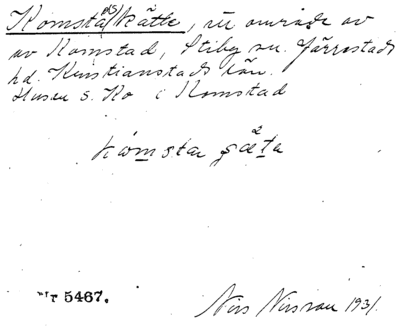 Komsta(ds)kätte, ett område av
av Komstad, Stiby sn. Järrestads
hd. Kristianstads län.
Husen s. Ko i Komstad
komsta gæta
Nr 5467.
Nils Nilsson 1931.